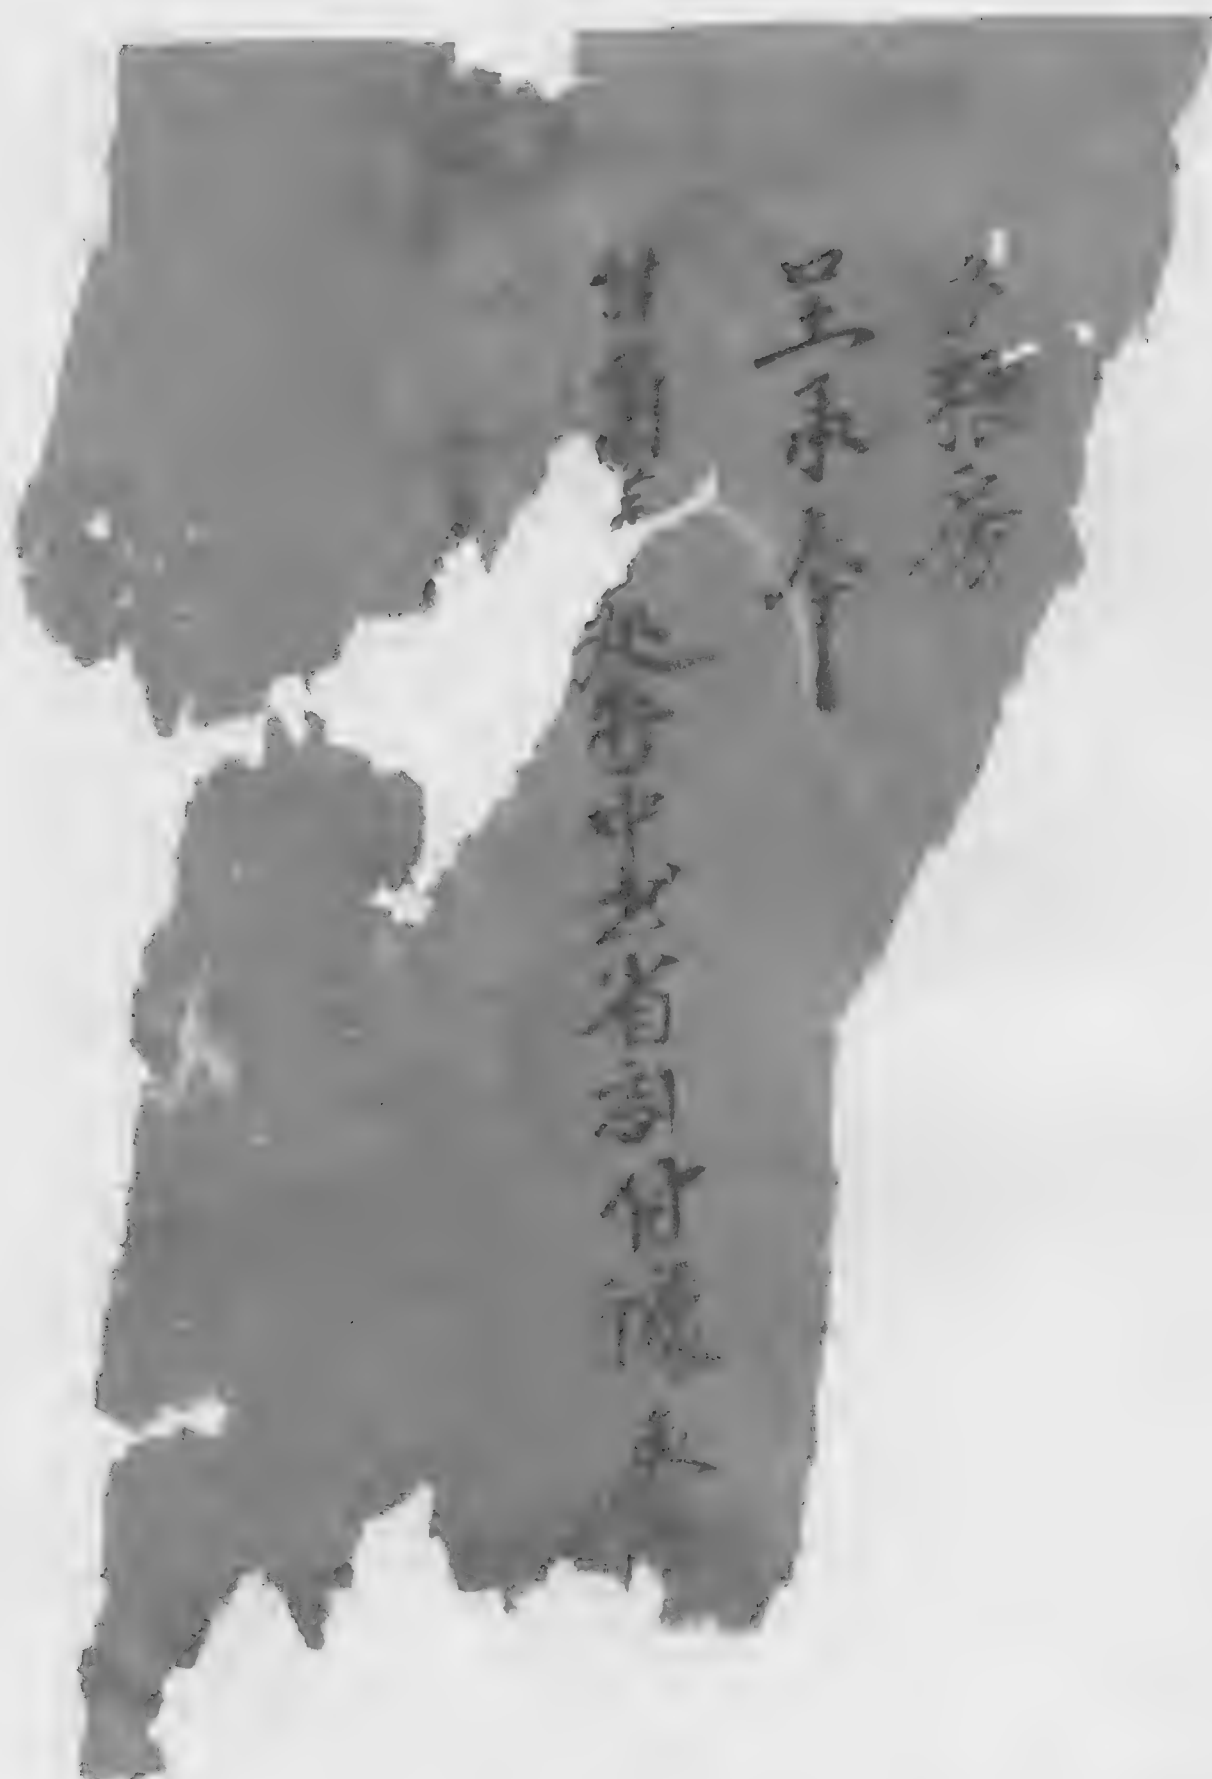 房
呈承奉
甘肅等處行中书省劄付該承